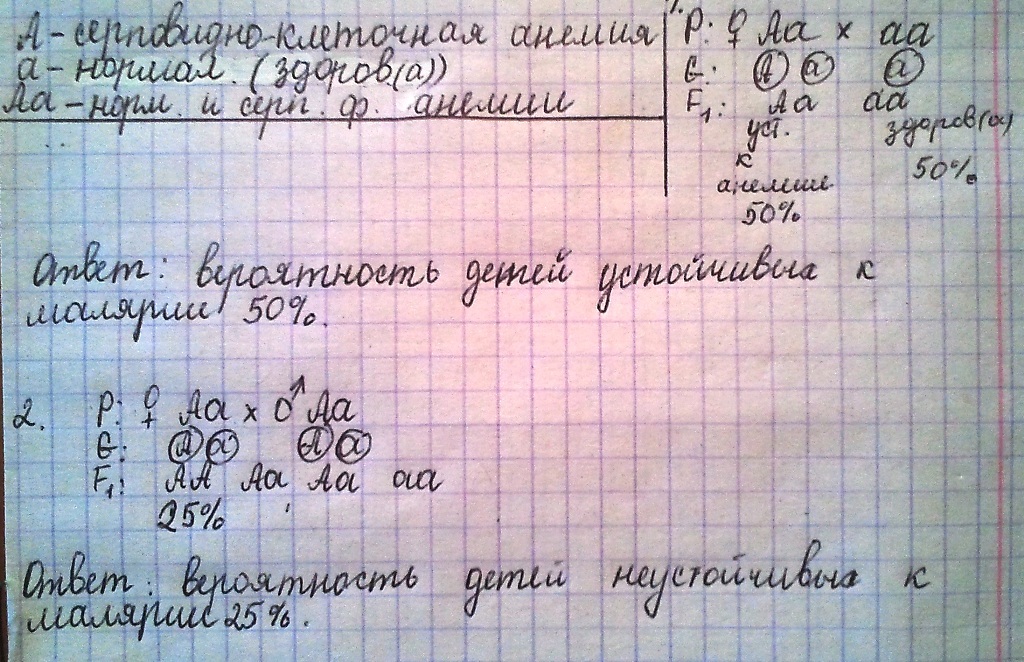 А - серповидно-клеточная анемия
а - нормал. (здоров(а))
Аа - норм. и серп. ф. анемии
1. P: ♀ Аа х аа
G: А а а
F₁: Аа аа
уст. здоров(а)
к 50%
анемии
50%
Ответ: вероятность детей устойчивых к
малярии 50%.
2. P: ♀ Аа х ♂ Аа
G: А а А а
F₁: АА Аа Аа аа
25%
Ответ: вероятность детей неустойчивых к
малярии 25%.